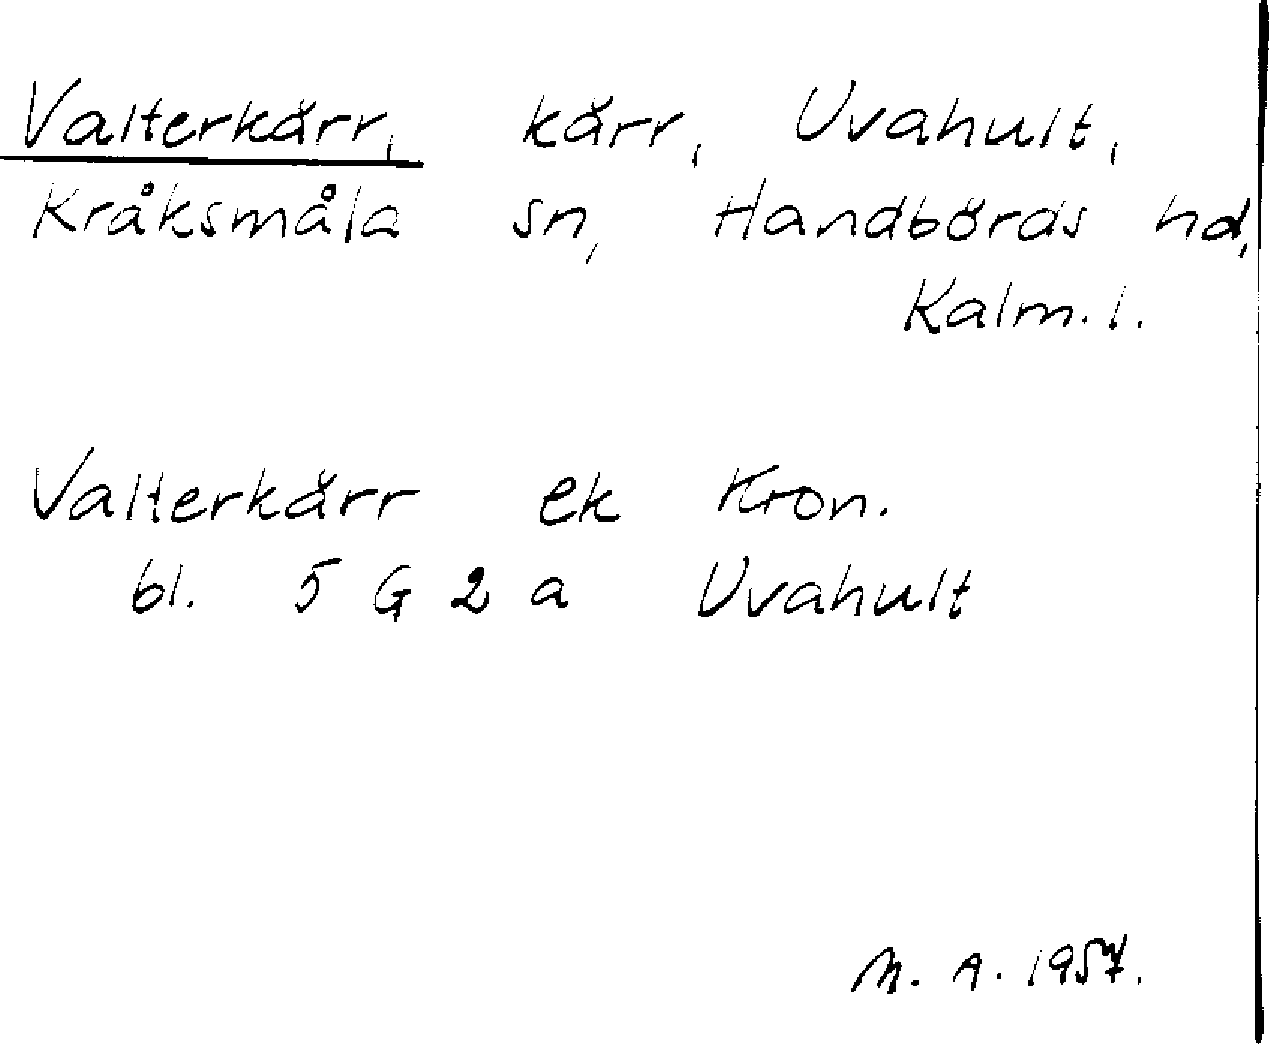 Valterkärr, kärr, Uvahult,
Kråksmåla sn, Handbörds hd,
Kalm. l.
Valterkärr ek Kron.
bl. 5 G 2 a Uvahult
M. A. 1957.